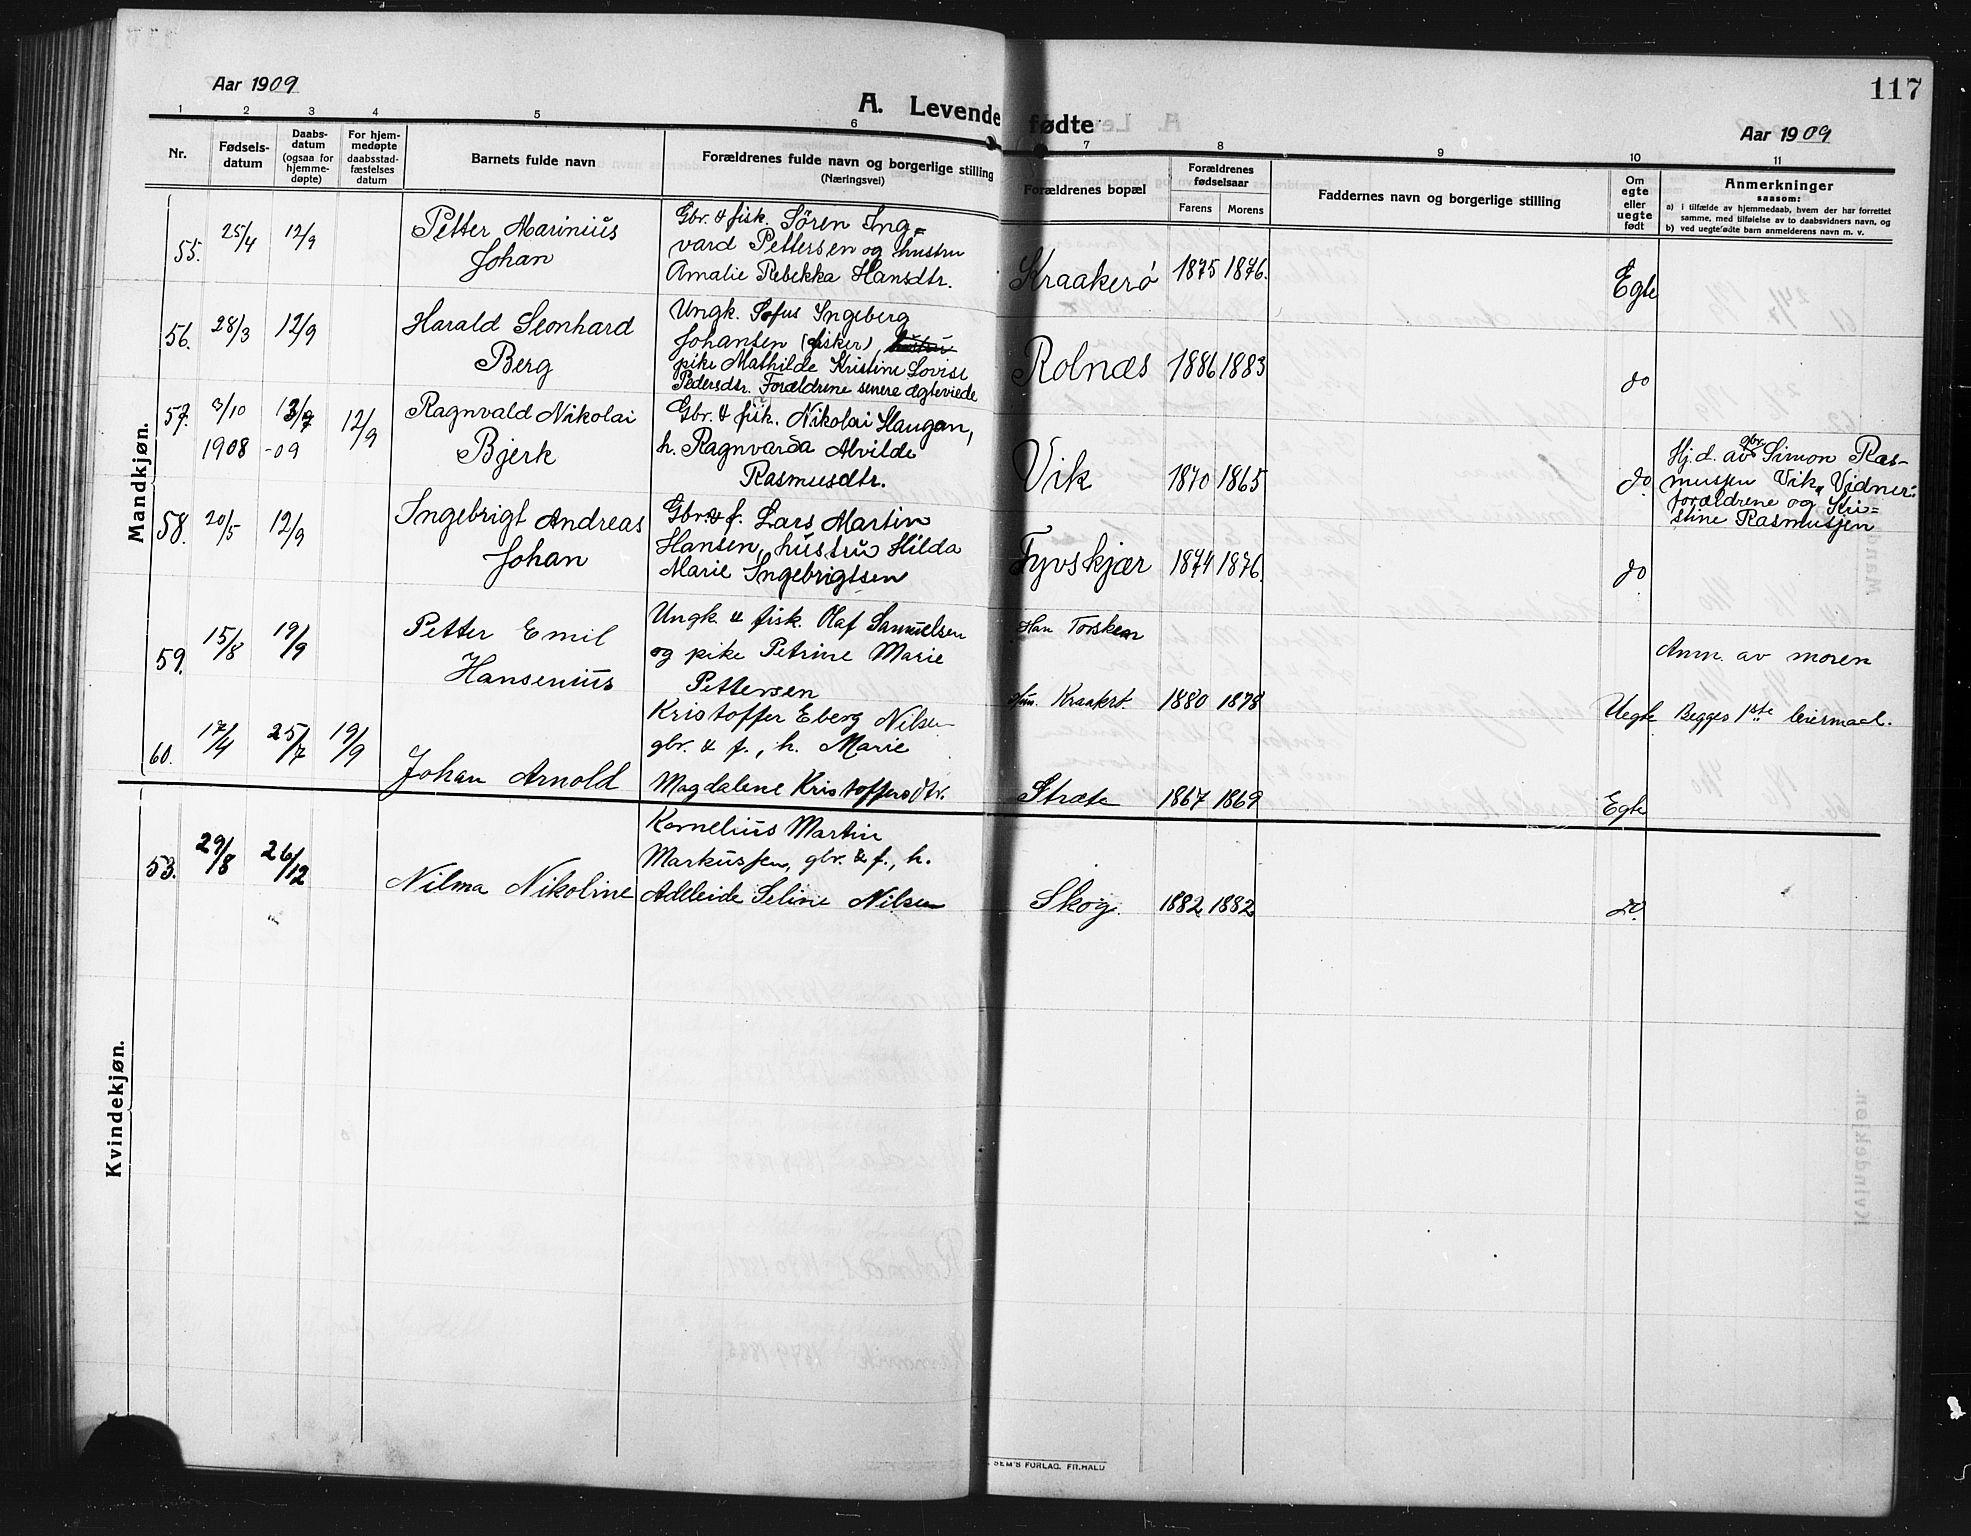 117
Aar 1909
Aar 1909
A. Levende fødte
1 2 3 4 5 6 7 8 9 10 11
Nr.
Fødsels-
datum
Daabs-
datum
(ogsaa for
hjemme-
døpte)
For hjem-
medøpte
daabsstad-
fæstelses
datum
Barnets fulde navn
Forældrenes fulde navn og borgerlige stilling
(Næringsvei)
Forældrenes bopæl
Forældrenes
fødselsaar
Farens Morens
Faddernes navn og borgerlige stilling
Om
egte
eller
uegte
født
Anmerkninger
saasom:
a) i tilfælde av hjemmedaab, hvem der har forrettet
samme, med tilføielse av to daabsvidners navn, og
b) ved uegtefødte barn anmelderens navn m. v.
Mandkjøn.
55. 25/4 12/9
Petter Marinius
Johan
Gbr. & fisk. Søren Ing=
vard Pettersen og hustru
Amalie Rebekka Hansdtr.
Kraakerø 1875 1876. Egte
56. 28/3 12/9
Harald Leonhard
Berg
Ungk. Sofus Ingeberg
Johansen (fisker) hustru
pike Mathilde Kristine Lovise
Pedersdtr. Forældrene senere ægteviede
Rolnæs 1886 1883 do
57. 3/10 1908 13/7 -09 12/9
Ragnvald Nikolai
Bjerk
Gbr. & fisk. Nikolai Haugan,
h. Ragnvarda Alvilde
Rasmusdtr.
Vik 1870 1865 do
Hj.d. av gbr. Simon Ras-
mussen Vik, Vidner:
forældrene og Kri=
stine Rasmussen
58. 20/5 12/9
Ingebrigt Andreas
Johan
Gbr. & f. Lars Martin
Hansen, hustru Hilda
Marie Ingebrigtsen
Tyvskjær 1874 1876. do
59. 15/8 19/9
Petter Emil
Hansenius
Ungk. & fisk. Olaf Samuelsen
og pike Petrine Marie
Pettersen
Han Torsken
Hun. Kraakrø. 1880 1878 Uegte
Anm. av moren
Begges 1ste leiermaal.
60. 17/4 25/7 19/9
Johan Arnold
Kristoffer Eberg Nilsen
gbr. & f., h. Marie
Magdalene Kristoffersdtr.
Stræte 1867 1869 Egte
Kvindekjøn.
53. 29/8 26/12
Nilma Nikoline
Kornelius Martin
Markussen, gbr. & f., h.
Adeleide Seline Nilsen
Skog. 1882 1882 do.
SEM'S FORLAG, FR.HALD